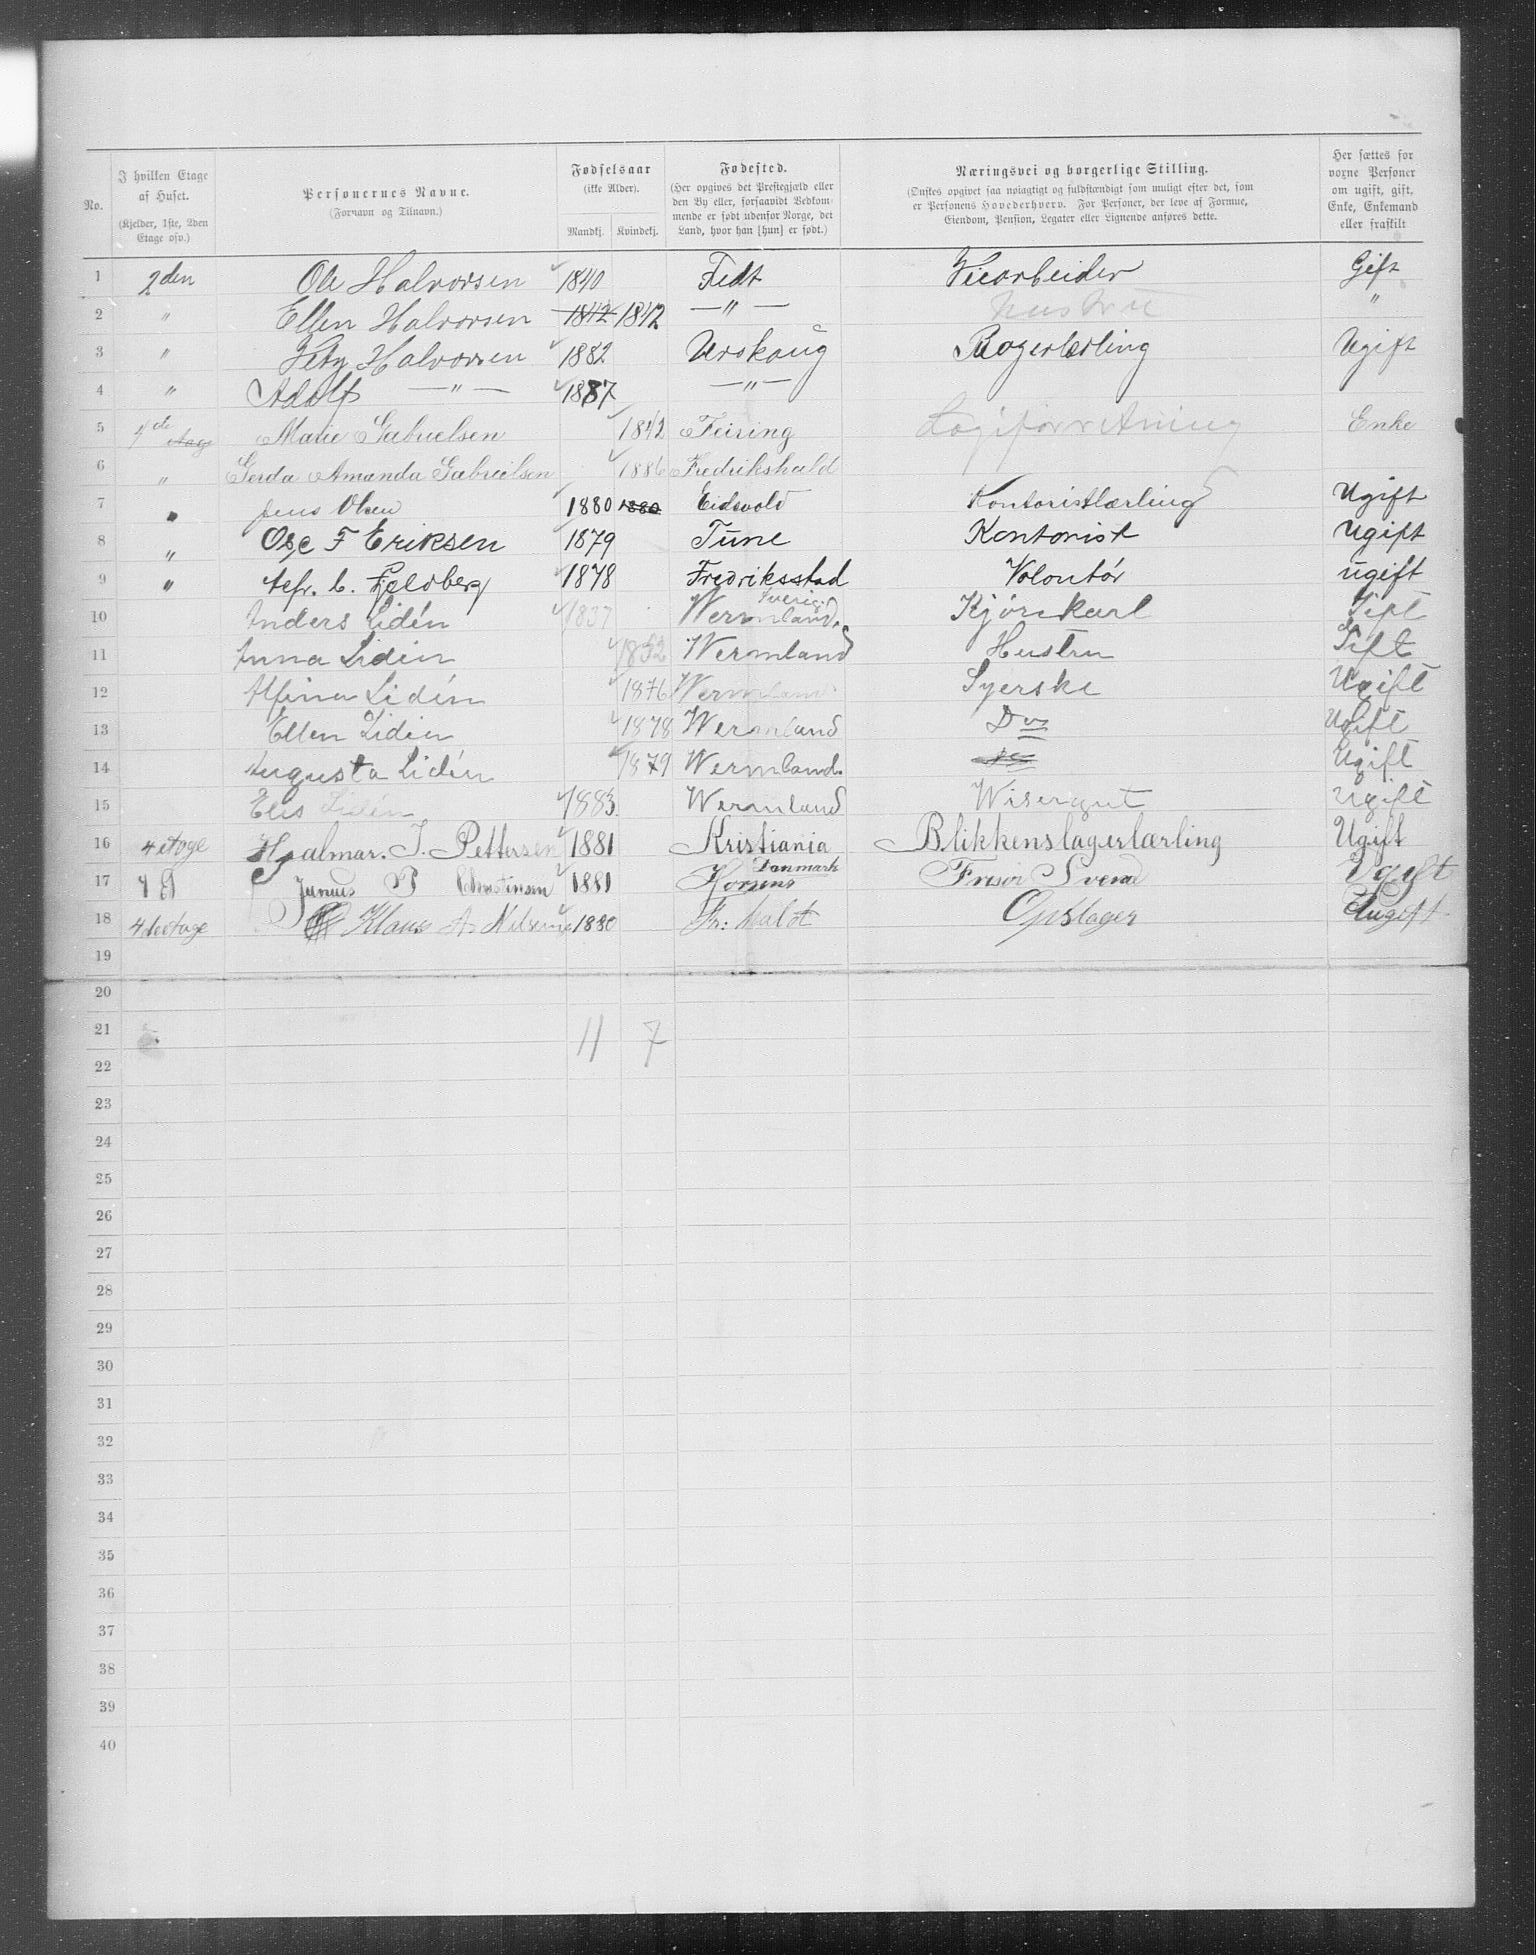 No.
I hvilken Etage af Huset.
(Kjelder, 1ste, 2den Etage osv.)
Personernes Navne.
(Fornavn og Tilnavn.)
Fødselsaar
(ikke Alder).
Mandkj. Kvindekj.
Fødested.
(Her opgives det Prestegjæld eller den By eller, forsaavidt Vedkommende er født udenfor Norge, det Land, hvor han [hun] er født.)
Næringsvei og borgerlige Stilling.
(Ønskes opgivet saa nøiagtigt og fuldstændigt som muligt efter det, som er Personens Hovederhverv. For Personer, der leve af Formue, Eiendom, Pension, Legater eller Lignende anføres dette.
Her sættes for voxne Personer om ugift, gift, Enke, Enkemand eller fraskilt
1 2den Ole Halvorsen 1840 Fedt Veiarbeider Gift
2 " Ellen Halvorsen 1842 1842 — " — Hustru "
3 " Halvorsen 1882 Urskoug Bagerlærling Ugift
4 " Adolf — " — 1887 — " —
5 4de Etage Marie Gabrielsen 1842 Feiring Logiforretning Enke
6 " Gerda Amanda Gabrielsen 1886 Fredrikshald
7 " Jens Olsen 1880 1880 Eidsvold Kontoristlærling Ugift
8 " Osc F Eriksen 1879 Tune Kontorist Ugift
9 " Alfr. C. Feldberg 1878 Fredriksstad Volontør ugift
10 Anders Lidén 1837 Wermland Sverig. Kjørekarl Gift
11 Anna Lidén 1832 Wermland Hustru Gift
12 Alfina Lidén 1876 Wermland Syerske Ugift
13 Ellen Lidén 1878 Wermland Do Ugift
14 Augusta Lidén 1879 Wermland. Ugift
15 Elis Lidén 1883. Wermland Wisergut Ugift
16 4 etage Hjalmar. J. Pettersen 1881 Kristiania Blikkenslagerlærling Ugift
17 4 E Junius P Christensen 1881 Horsens Danmark Frisør Svend Ugift
18 4de etage Klaus A. Nilsen 1880 Fr: hald Opslager Ugift
19
20
21 11 7
22
23
24
25
26
27
28
29
30
31
32
33
34
35
36
37
38
39
40